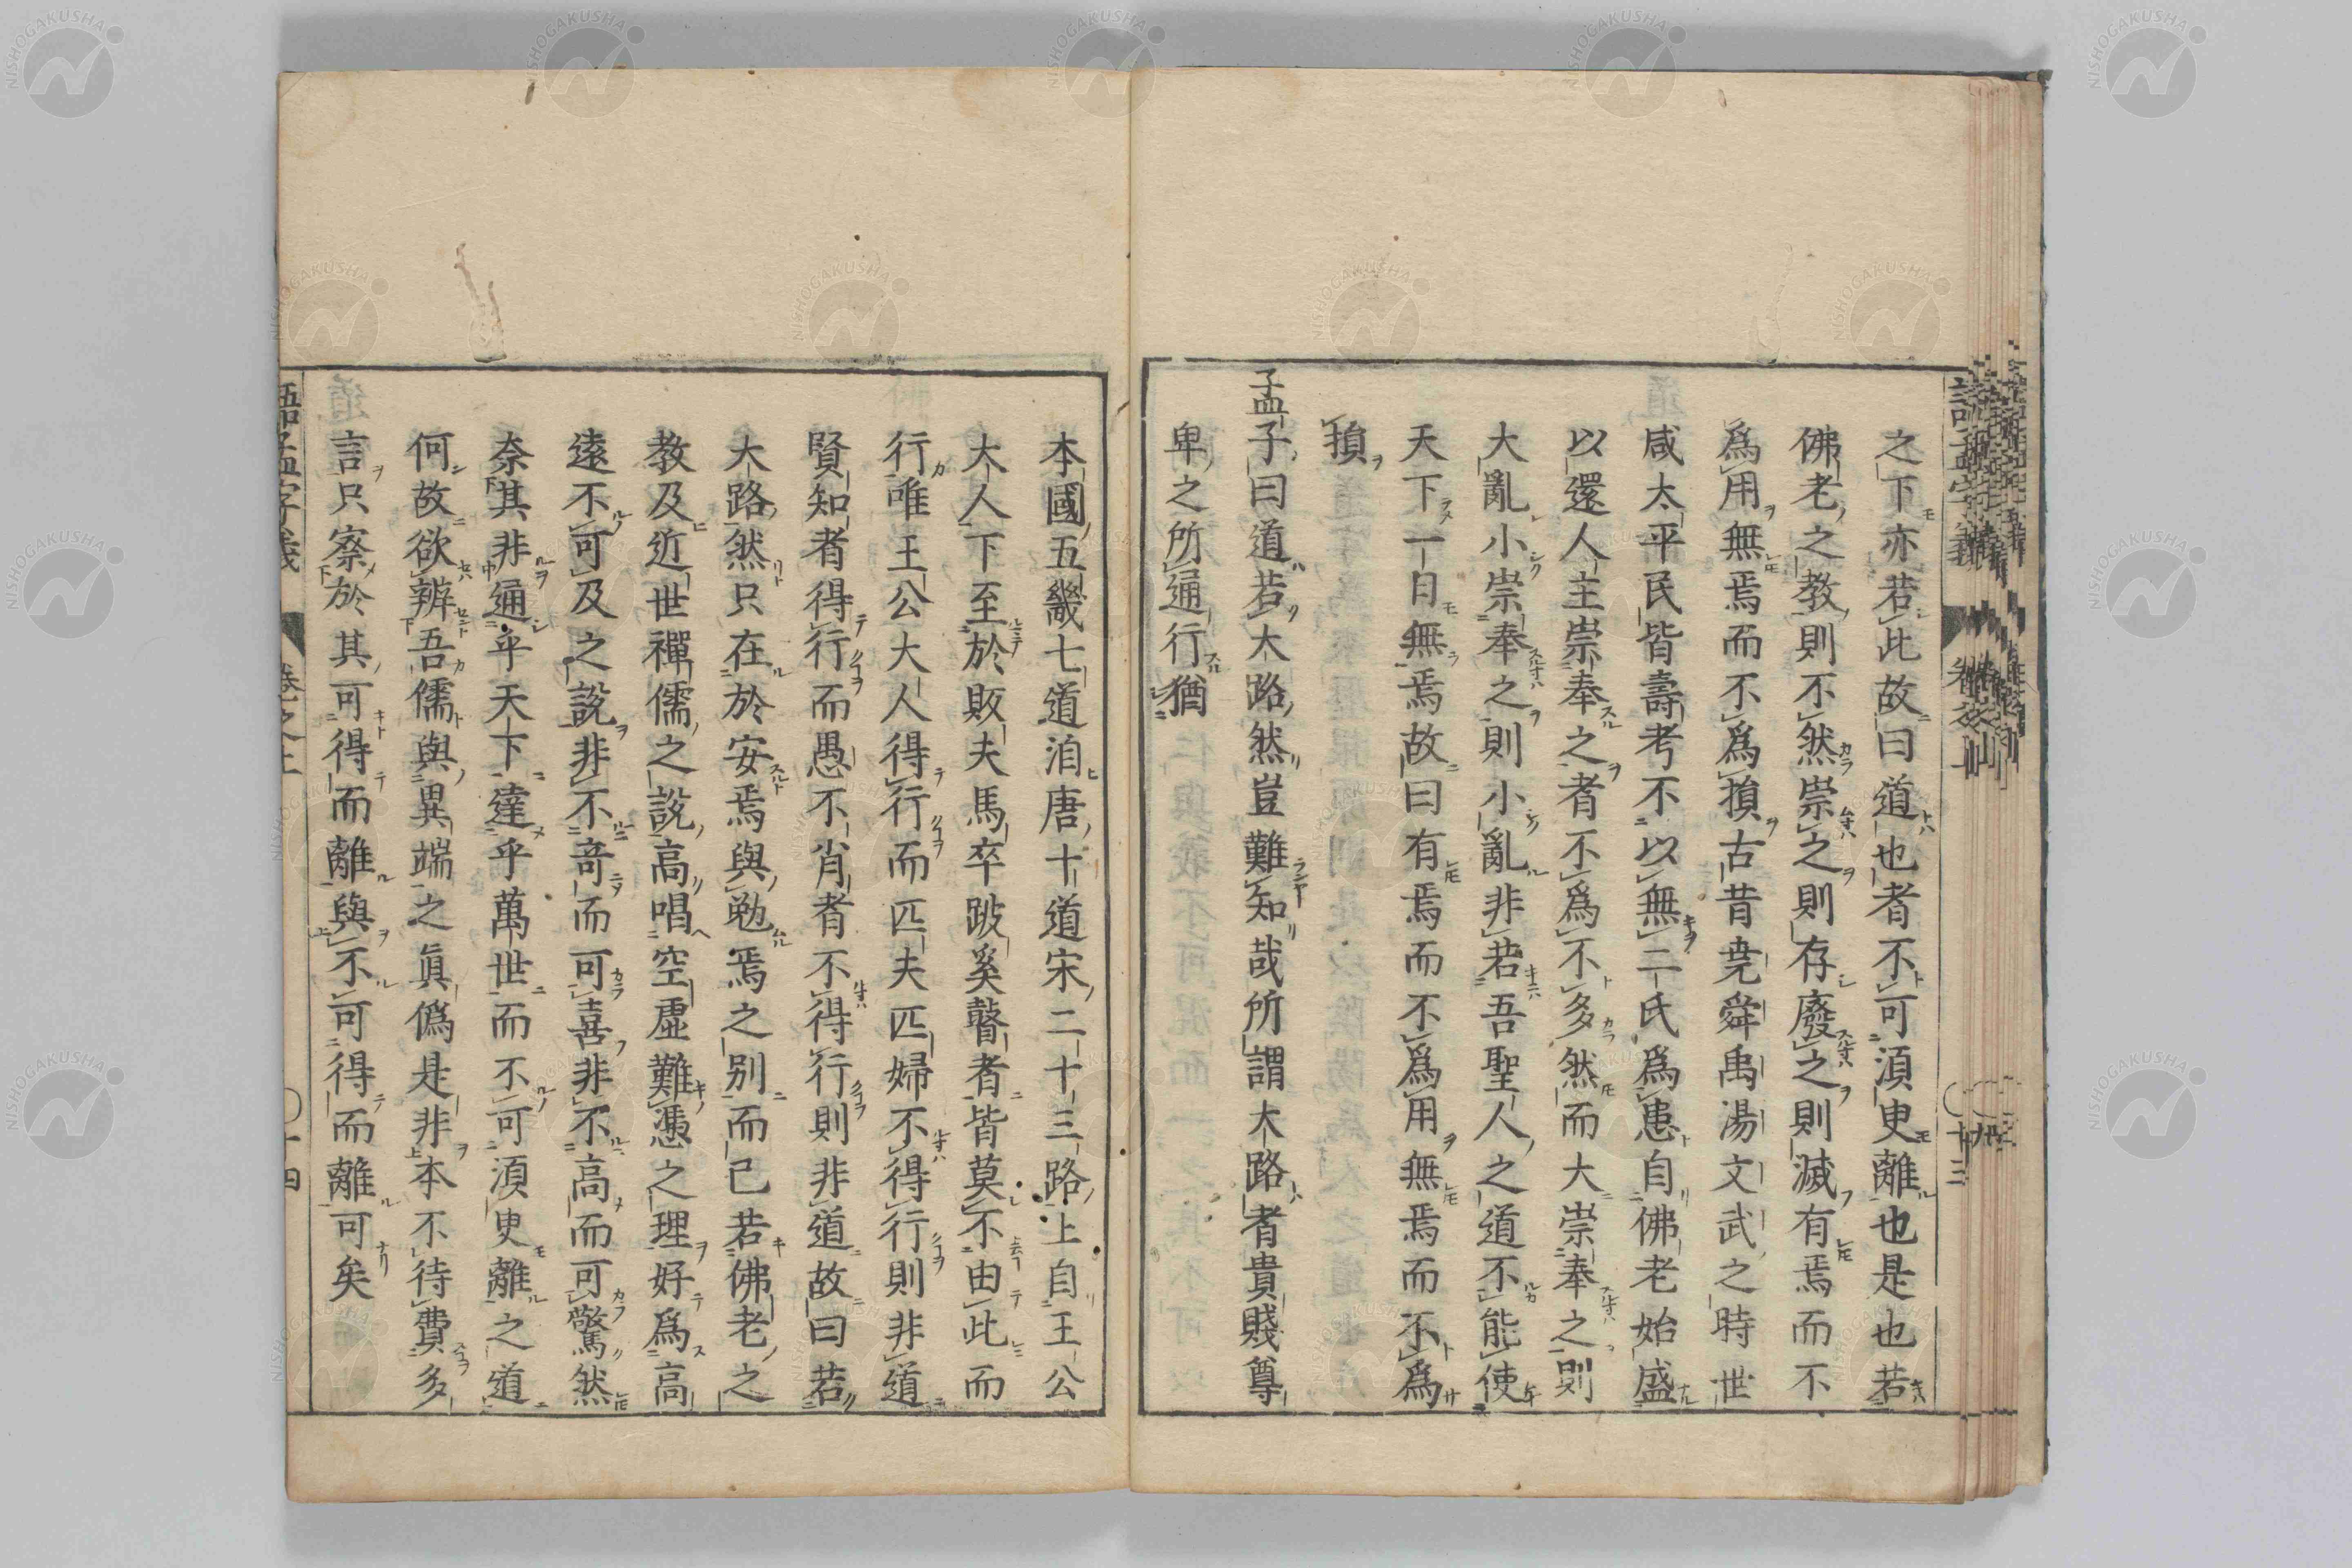 之下亦若此故曰道也者不可須臾離也是也若
佛老之教則不然崇之則存廢之則滅有焉而不
爲用無焉而不爲損古昔尭舜禹湯文武之時世
咸太平民皆壽考不以無二氏爲患自佛老始盛
以還人主崇奉之者不爲不多然而大崇奉之則
大亂小崇奉之則小亂非若吾聖人之道不能使
天下一日無焉故曰有焉而不爲用無焉而不爲
損
孟子曰道若大路然豈難知哉所謂大路者貴賤尊
卑之所通行猶
本國五畿七道洎唐十道宋二十三路上自王公
大人下至於販夫馬卒跛奚瞽者皆莫不由此而
行唯王公大人得行而匹夫匹婦不得行則非道
賢知者得行而愚不肖者不得行則非道故曰若
大路然只在於安焉與勉焉之别而已若佛老之
教及近世禪儒之說高唱空虛難憑之理好爲高
遠不可及之說非不奇而可喜非不高而可驚然
奈其非通乎天下達乎萬世而不可須臾離之道
何故欲辨吾儒與異端之眞僞是非本不待費多
言只察於其可得而離與不可得而離可矣
語孟字義
卷之上
十四